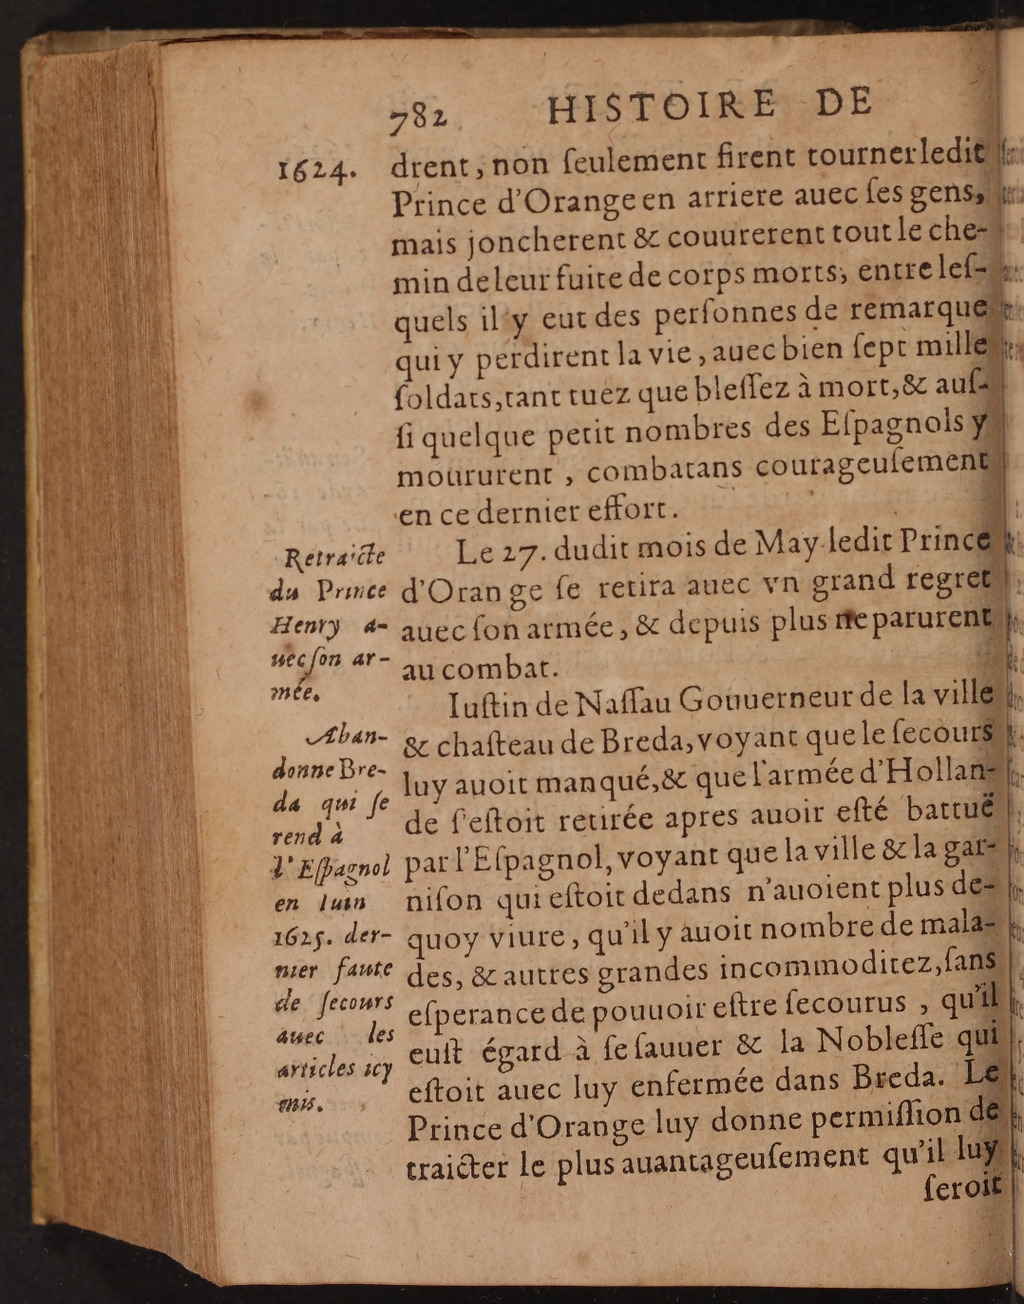 782 HISTOIRE DE
1624.
drent, non ſeulement firent tourner ledit
Prince d'Orange en arriere auec ſes gens,
mais joncherent & couurerent tout le che-
min de leur fuite de corps morts, entre leſ-
quels il y eut des perſonnes de remarque
qui y perdirent la vie, auec bien ſept mille
ſoldats, tant tuez que bleſſez à mort, & auſ-
ſi quelque petit nombres des Eſpagnols y
moururent, combatans courageuſement
en ce dernier effort.
Le 27. dudit mois de May ledit Prince
d'Orange ſe retira auec vn grand regret
auec ſon armée, & depuis plus ne parurent
au combat.
Iuſtin de Naſſau Gouuerneur de la ville
& chaſteau de Breda, voyant que le ſecours
luy auoit manqué, & que l'armée d'Hollan-
de s'eſtoit retirée apres auoir eſté battuë
par l'Eſpagnol, voyant que la ville & la gar-
niſon qui eſtoit dedans n'auoient plus de-
quoy viure, qu'il y auoit nombre de mala-
des, & autres grandes incommoditez, ſans
eſperance de pouuoir eſtre ſecourus, qu'il
euſt égard à ſe ſauuer & la Nobleſſe qui
eſtoit auec luy enfermée dans Breda. Le
Prince d'Orange luy donne permiſſion de
traicter le plus auantageuſement qu'il luy
ſeroit
Retraicte
du Prince
Henry a-
uec ſon ar-
mée.
Aban-
donne Bre-
da qui ſe
rend à
l'Eſpagnol
en Iuin
1625. der-
nier faute
de ſecours
auec les
articles icy
mis.